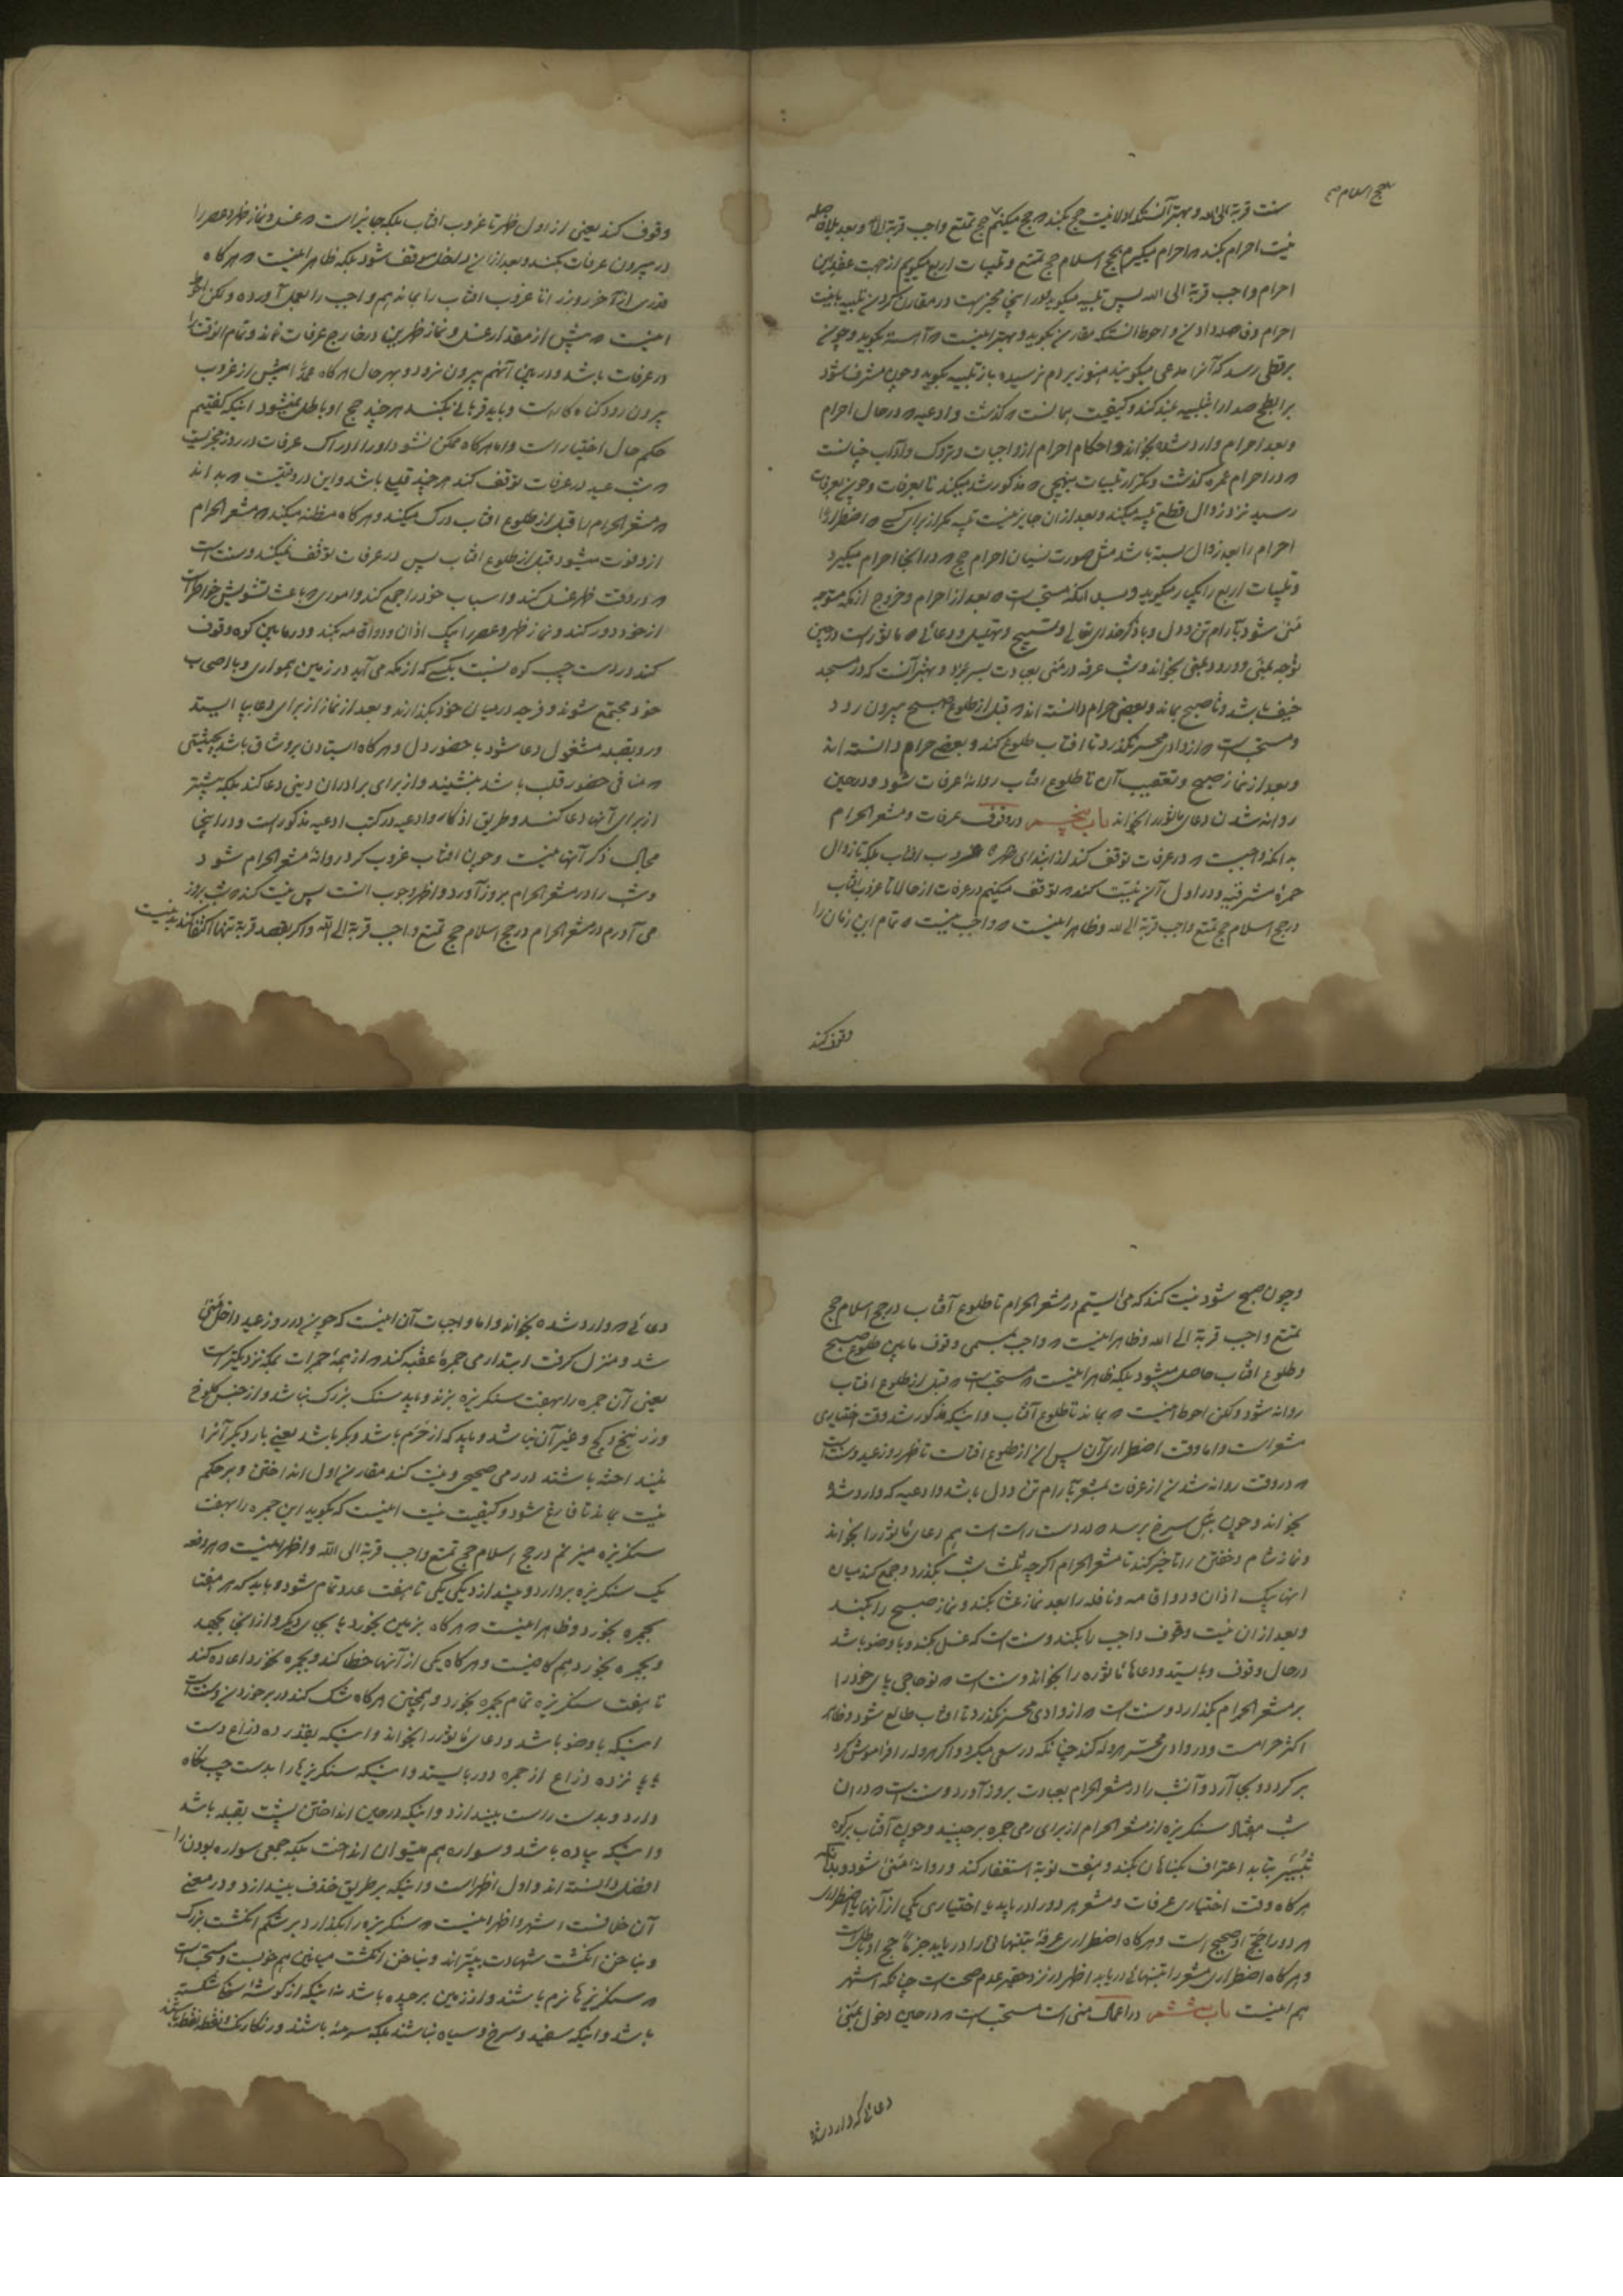 بحج اسلام صح
سنت قربة الی الله و بهتر آنستکه اولا نیت حج بکند که حج میکنم حج تمتع واجب قربة الی الله و بعد بلافاصله
نیت احرام بکند که احرام میگیرم بحج اسلام حج تمتع و تلبیات اربع میگویم از جهت عقد این
احرام واجب قربة الی الله پس تلبیه میگوید و در اینجا مخیر است در مقارن کردن تلبیه با نیت
احرام و فاصله دادن و احوط آنستکه مقارن بگوید و بهتر اینست که آهسته بگوید و چون
برقطی رسد که آنرا مدعی میگویند هنوز بردم نرسیده باز تلبیه بگوید و چون مشرف شود
بر ابطح صدا را بتلبیه بلند کند و کیفیت همانست که گذشت و ادعیه که در حال احرام
و بعد احرام وارد شده بخواند و احکام احرام از واجبات و تروک و آداب چنانست
که در احرام عمره گذشت و تکرار تلبیات بنهجی که مذکور شد میکند تا بعرفات و چون بعرفات
رسید نزد زوال قطع تلبیه میکند و بعد از آن جایز نیست تلبیه مگر از برای کسی که اضطرارا
احرام را بعد زوال بسته باشد مثل صورت نسیان احرام حج که در آنجا احرام میگیرد
و تلبیات اربع را یکبار میگوید و بدانکه مستحب است که بعد از احرام و خروج از مکه متوجه
منی شود بآرام تن و دل و با ذکر خدای تعالی و تسبیح و تهلیل و دعائی که ماثور است در حین
توجه بمنی و ورود بمنی بخواند و شب عرفه در منی بعبادت بسر برد و بهتر آنست که در مسجد
خیف باشد و تا صبح بماند و بعضی حرام دانسته اند که قبل از طلوع صبح بیرون رود
و مستحب است که از وادی محسر نگذرد تا افتاب طلوع کند و بعضی حرام دانسته اند
و بعد از نماز صبح و تعقیب آن تا طلوع افتاب روانه عرفات شود و در حین
روانه شدن دعای ماثور را بخواند باب پنجم در وقوف عرفات و مشعر الحرام
بدانکه واجبست که در عرفات توقف کند از ابتدای ظهر تا غروب افتاب بلکه تا زوال
حمره مشرقیه و در اول آن نیت کند که توقف میکنم در عرفات از حالا تا غروب افتاب
در حج اسلام حج تمتع واجب قربة الی الله و ظاهر اینست که واجب نیست که تمام این زمان را
وقوف کند
وقوف کند یعنی از اول ظهر تا غروب افتاب بلکه جایز است که غسل و نماز ظهر و عصر را
در بیرون عرفات بکند و بعد از آن داخل موقف شود بلکه ظاهر اینست که هر گاه
قدری از آخر روز را تا غروب افتاب را بماند هم واجب را بعمل آورده و لکن احوط
اینست که بیش از مقدار غسل و نماز ظهرین در خارج عرفات نماند و تمام الوقت را
در عرفات باشد و در بین آنهم بیرون نرود و بهر حال هر گاه عمدا پیش از غروب
بیرون رود گناه کار است و باید قربانی بکند هر چند حج او باطل نمیشود اینکه گفتیم
حکم حال اختیار است و اما هر گاه ممکن نشود او را ادراک عرفات در روز مجزیست
که شب عید در عرفات توقف کند هر چند قلیلی باشد و این در وقتیست که بداند
که مشعر الحرام را قبل از طلوع افتاب درک میکند و هر گاه مظنه میکند که مشعر الحرام
از او فوت میشود قبل از طلوع افتاب پس در عرفات توقف نمیکند و سنت است
که در وقت ظهر غسل کند و اسباب خود را جمع کند و اموری که باعث تشویش خواطر است
از خود دور کند و نماز ظهر و عصر را بیک اذان و دو اقامه بکند و در مابین کوه وقوف
کند در دست چپ کوه نسبت بکسی که از مکه می آید در زمین همواری و با اصحاب
خود مجتمع شوند و فرجه در میان خود نگذارند و بعد از نماز از برای دعا بپا ایستد
و رو بقبله مشغول دعا شود با حضور دل و هر گاه ایستادن بر او شاق باشد بحیثیتی
که منافی حضور قلب باشد بنشیند و از برای برادران دینی دعا کند بلکه بیشتر
از برای آنها دعا کند و طریق اذکار و ادعیه در کتب ادعیه مذکور است و در اینجا
مجال ذکر آنها نیست و چون افتاب غروب کرد روانه مشعر الحرام شود
و شب را در مشعر الحرام بروز آورد و اظهر وجوب انست پس نیت کند که شب بروز
می آورم در مشعر الحرام در حج اسلام حج تمتع واجب قربة الی الله و اگر بقصد قربة تنها اکتفا کند بد نیست
و چون صبح شود نیت کند که می ایستم در مشعر الحرام تا طلوع آفتاب در حج اسلام حج
تمتع واجب قربة الی الله و ظاهر اینست که واجب بمسمی وقوف مابین طلوع صبح
و طلوع افتاب حاصل میشود بلکه ظاهر اینست که مستحب است که قبل از طلوع افتاب
روانه شود و لکن احوط اینست که بماند تا طلوع آفتاب و اینکه مذکور شد وقت اختیاری
مشعر است و اما وقت اضطراری آن پس آن از طلوع افتاب تا ظهر روز عید و سنت است
که در وقت روانه شدن از عرفات بمشعر بآرام تن و دل باشد و ادعیه که وارد شده
بخواند و چون بتل سرخ برسد که در دست راست است هم دعای ماثور را بخواند
و نماز شام و خفتن را تاخیر کند تا مشعر الحرام اگر چه ثلث شب بگذرد و جمع کند میان
انها بیک اذان و دو اقامه و نافله را بعد نماز عشا بکند و نماز صبح را بکند
و بعد از ان نیت وقوف واجب را بکند و سنت است که غسل بکند و با وضو باشد
در حال وقوف و بایستد و دعاهای ماثوره را بخواند و سنت است که نو حاجی پای خود را
بر مشعر الحرام بگذارد و سنت است که از وادی محسر نگذرد تا افتاب طالع شود و ظاهر
اکثر حرامست و در وادی محسر هروله کند چنانکه در سعی میکرد و اگر هروله را فراموش کرد
برگردد و بجا آرد و آنشب را در مشعر الحرام بعبادت بروز آورد و سنت است که در ان
شب هفتاد سنگریزه از مشعر الحرام از برای رمی جمره برچیند و چون آفتاب بر کوه
ثبیر بتابد اعتراف بگناهان بکند و هفت نوبة استغفار کند و روانه منی شود و بدانکه
هر گاه وقت اختیاری عرفات و مشعر هر دو را دریابد یا اختیاری یکی از آنها با اضطراری
هر دو را حج او صحیح است و هر گاه اضطراری عرفة بتنهائی را دریابد جزما حج او باطل است
و هر گاه اضطراری مشعر را بتنهائی دریابد اظهر در نزد حقیر عدم صحت است چنانکه اشهر
هم اینست باب ششم در اعمال منی است مستحب است که در حین دخول بمنی
دعائی که وارد شده
دعائی که وارد شده بخواند و اما واجبات آن اینست که چون در روز عید داخل منی
شد و منزل گرفت ابتدا رمی جمره عقبه کند که از همه جمرات بمکه نزدیکتر است
یعنی آن جمره را بهفت سنگریزه بزند و باید سنک بزرک نباشد و از جنس کلوخ
و زرنیخ و گچ و غیر آن نباشد و باید که از حرم باشد و بکر باشد یعنی بار دیگر آنرا
نینداخته باشند در رمی صحیحی و نیت کند مقارن اول انداختن و بر حکم
نیت بماند تا فارغ شود و کیفیت نیت اینست که بگوید این جمره را بهفت
سنگریزه میزنم در حج اسلام حج تمتع واجب قربة الی الله و اظهر اینست که هر دفعه
یک سنگریزه بردارد و بیندازد یکی یکی تا هفت عدد تمام شود و باید که هر هفت
بجمره بخورد و ظاهر اینست که هر گاه بزمین بخورد یا بجای دیگر و از آنجا بجهد
و بجمره بخورد هم کافیست و هر گاه یکی از آنها خطا کند و بجمره نخورد اعاده کند
تا هفت سنگریزه تمام بجمره بخورد و همچنین هر گاه شک کند در برخوردن و سنت است
اینکه با وضو باشد و دعای ماثور را بخواند و اینکه بقدر ده ذراع دست
یا پانزده ذراع از جمره دور بایستد و اینکه سنگریزها را بدست چپ نگاه
دارد و بدست راست بیندازد و اینکه در حین انداختن پشت بقبله باشد
و اینکه پیاده باشد و سواره هم میتوان انداخت بلکه جمعی سواره بودن را
افضل دانسته اند و اول اظهر است و اینکه بر طریق خذف بیندازد و در معنی
آن خلافست اشهر و اظهر اینست که سنگریزه را بگذارد بر شکم انگشت بزرک
و بناخن انگشت شهادت بیندازد و بناخن انگشت میانین هم خوبست و مستحب است
که سنگریزها نرم باشند و از زمین برچیده باشد نه اینکه از گوشه سنگ شکسته
باشد و اینکه سفید و سرخ و سیاه نباشند بلکه سرمه باشند و رنگارنک و نقطه نقطه باشند